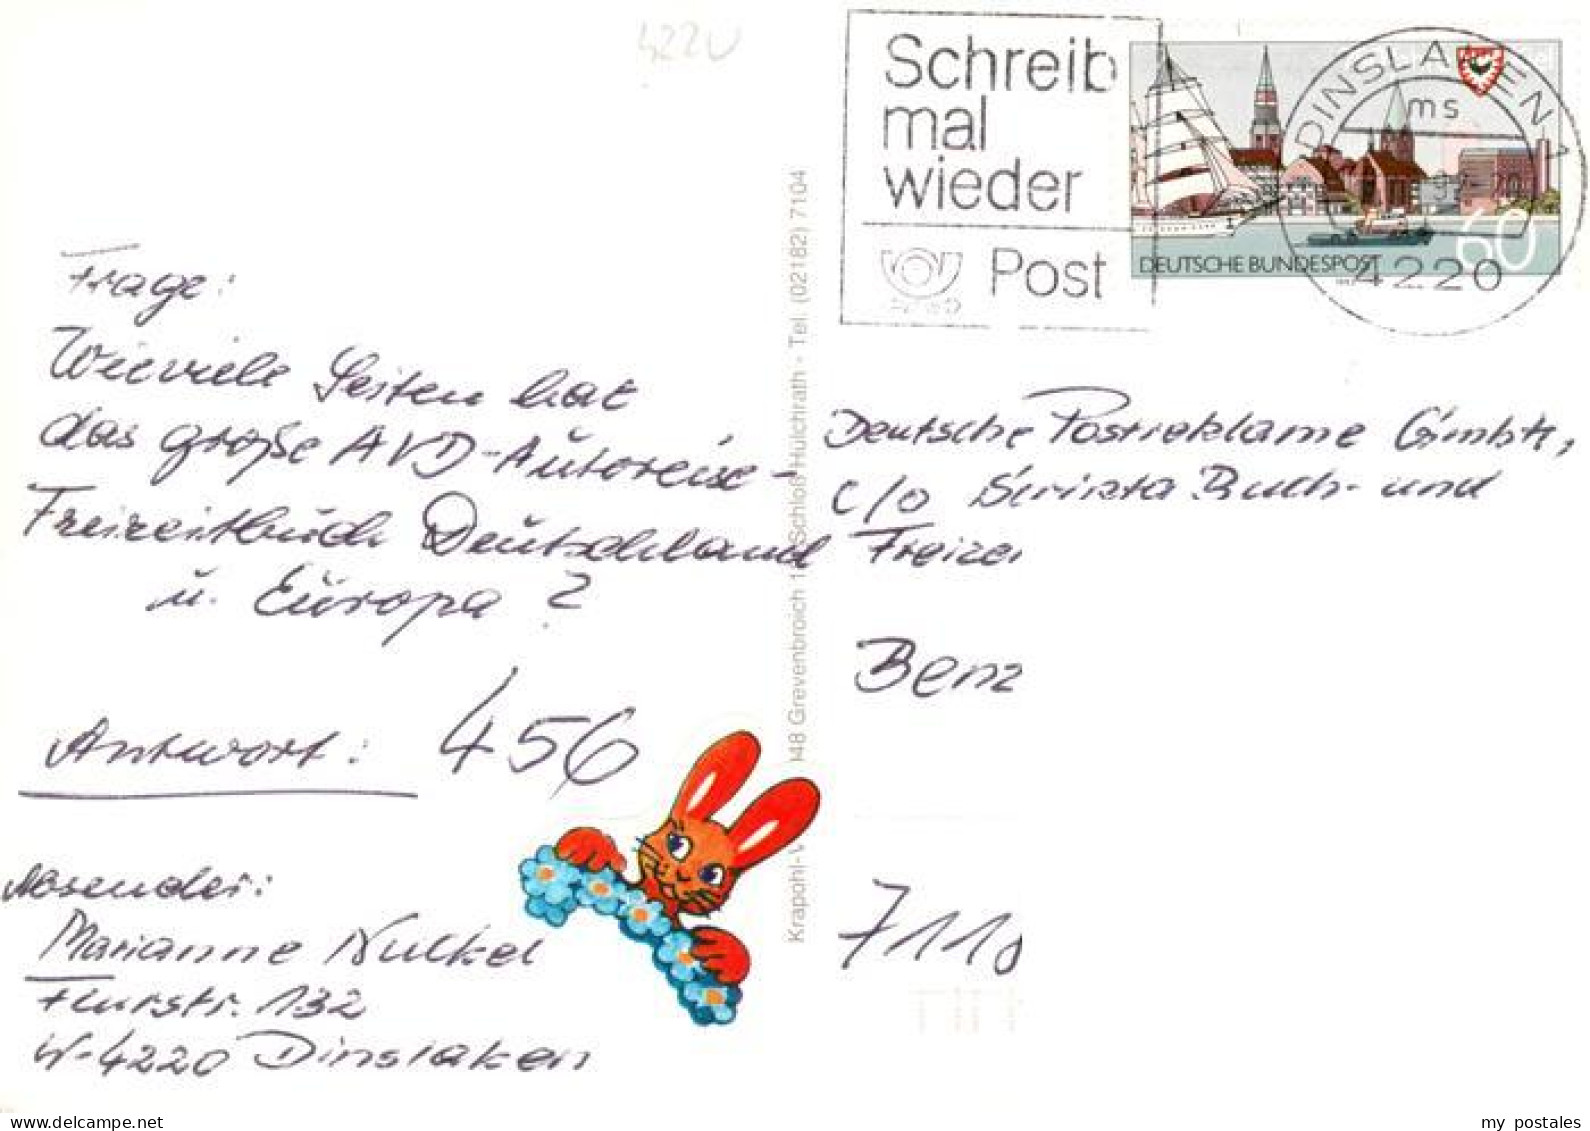 4220
Schreib
mal
wieder
Post
DINSLAKEN 1
ms
4220
DEUTSCHE BUNDESPOST
60
Frage:
Wieviele Seiten hat
das große AVD-Autoreise-
Freizeitbuch Deutschland
u. Europa?
Antwort: 456
Absender:
Marianne Nulkel
Flurstr. 132
W-4220 Dinslaken
Krapohl-V
148 Grevenbroich 1
Schloß Hülchrath - Tel. (02182) 7104
Deutsche Postreklame GmbH,
c/o Scripta Buch- und
Freizei
Benz
711
my postales